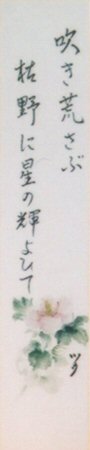 吹き荒さぶ
枯野に星の輝よひて